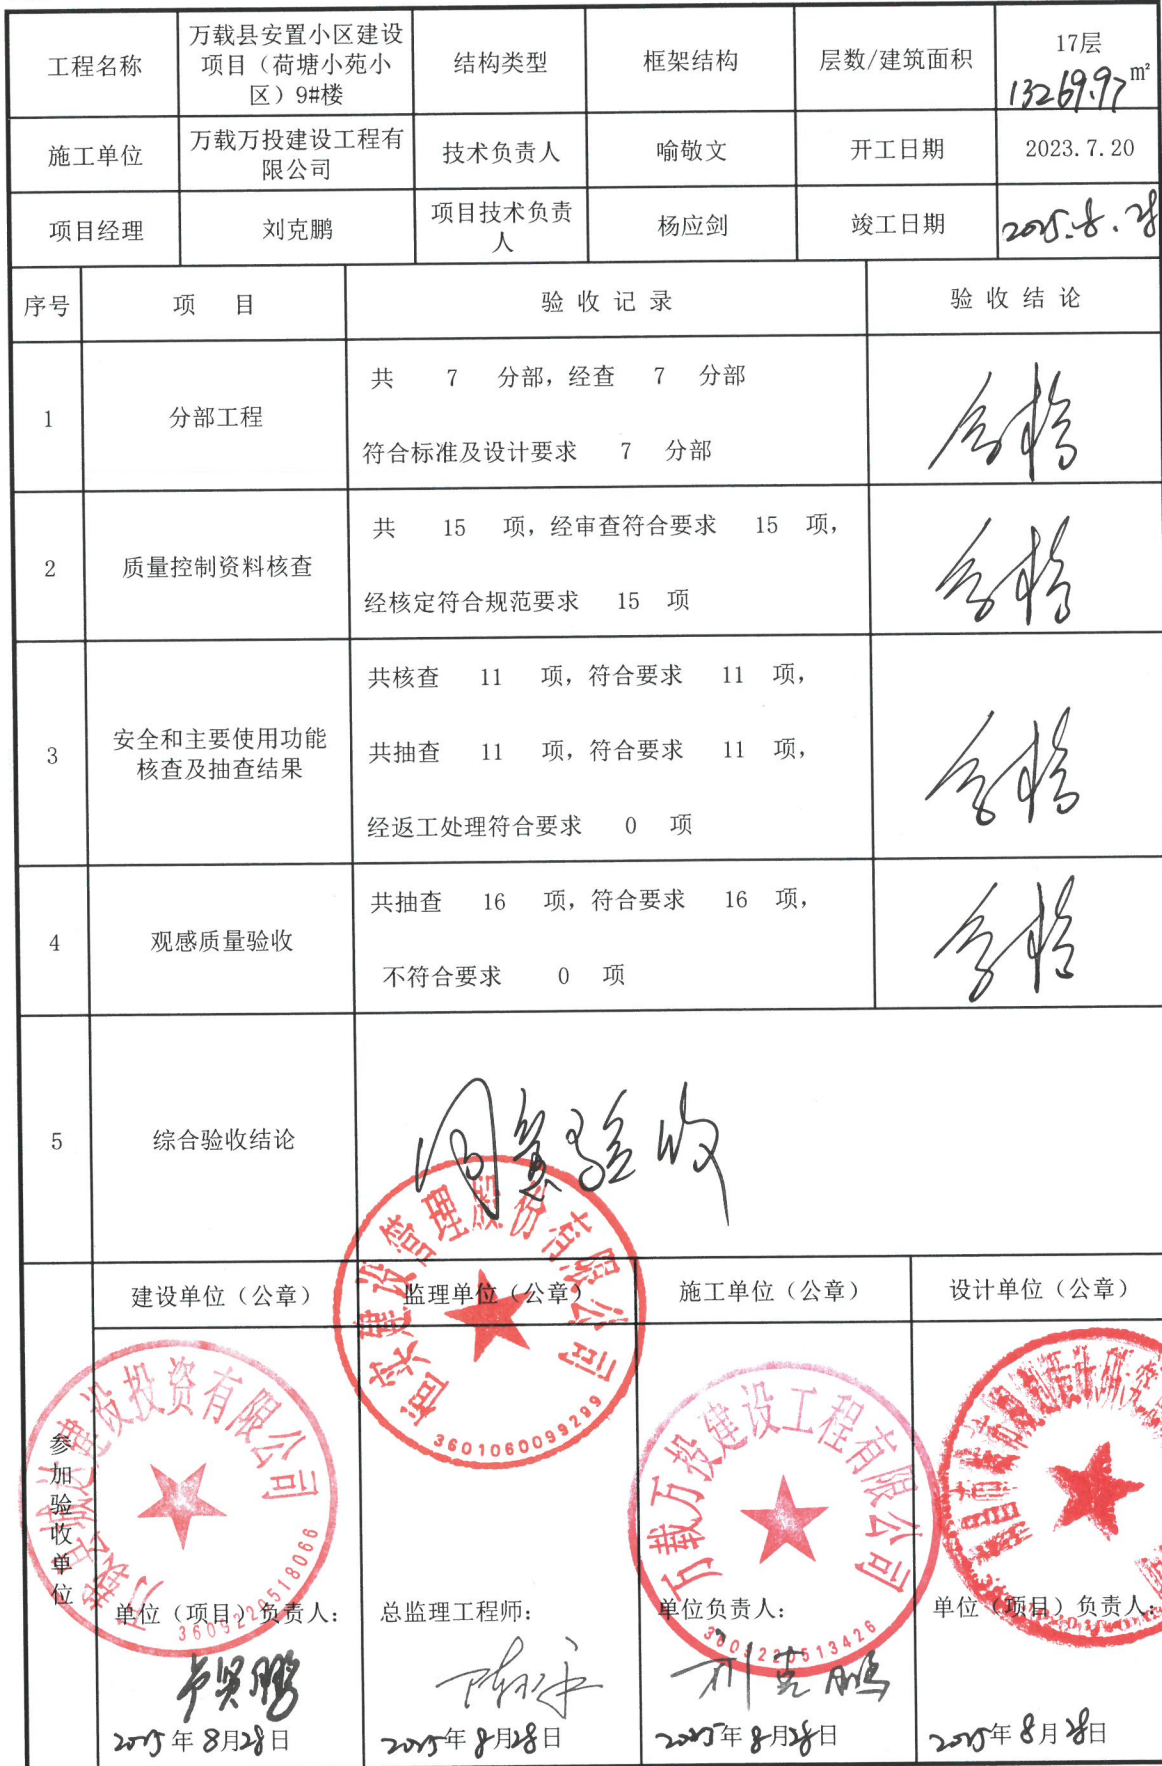 工程名称
万载县安置小区建设
项目（荷塘小苑小
区）9#楼
结构类型
框架结构
层数/建筑面积
17层
13269.97m²
施工单位
万载万投建设工程有
限公司
技术负责人
喻敬文
开工日期
2023.7.20
项目经理
刘克鹏
项目技术负责
人
杨应剑
竣工日期
2025.8.28
序号
项 目
验 收 记 录
验 收 结 论
1
分部工程
共 7 分部，经查 7 分部
符合标准及设计要求 7 分部
合格
2
质量控制资料核查
共 15 项，经审查符合要求 15 项，
经核定符合规范要求 15 项
合格
3
安全和主要使用功能
核查及抽查结果
共核查 11 项，符合要求 11 项，
共抽查 11 项，符合要求 11 项，
经返工处理符合要求 0 项
合格
4
观感质量验收
共抽查 16 项，符合要求 16 项，
不符合要求 0 项
合格
5
综合验收结论
同意验收
参加验收单位
建设单位（公章）
监理单位（公章）
施工单位（公章）
设计单位（公章）
建设投资有限公司
3609220518066
建设管理股份有限公司
3601060099299
万载万投建设工程有限公司
3609220513426
单位（项目）负责人：
总监理工程师：
单位负责人：
单位（项目）负责人：
刘克鹏
2025年8月28日
2025年8月28日
2025年8月28日
2025年8月28日